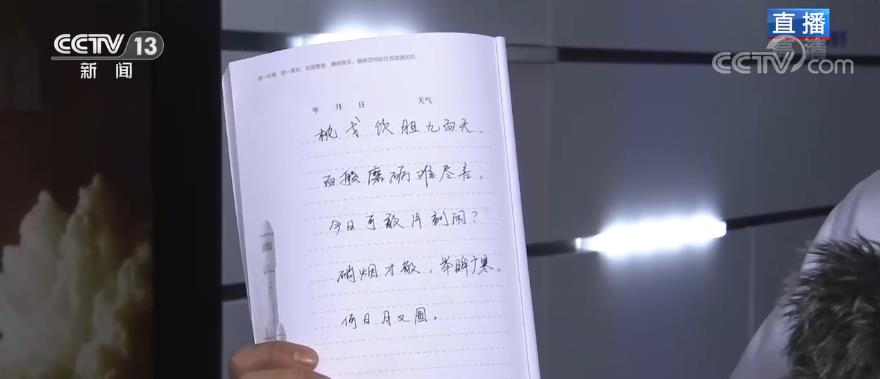 CCTV 13
新闻
直播
CCTV.com
年 月 日 天气
枕戈饮胆九百天，
百般磨砺难尽言，
今日可敢片刻闲？
硝烟才散，举眸广寒，
何日月又圆。